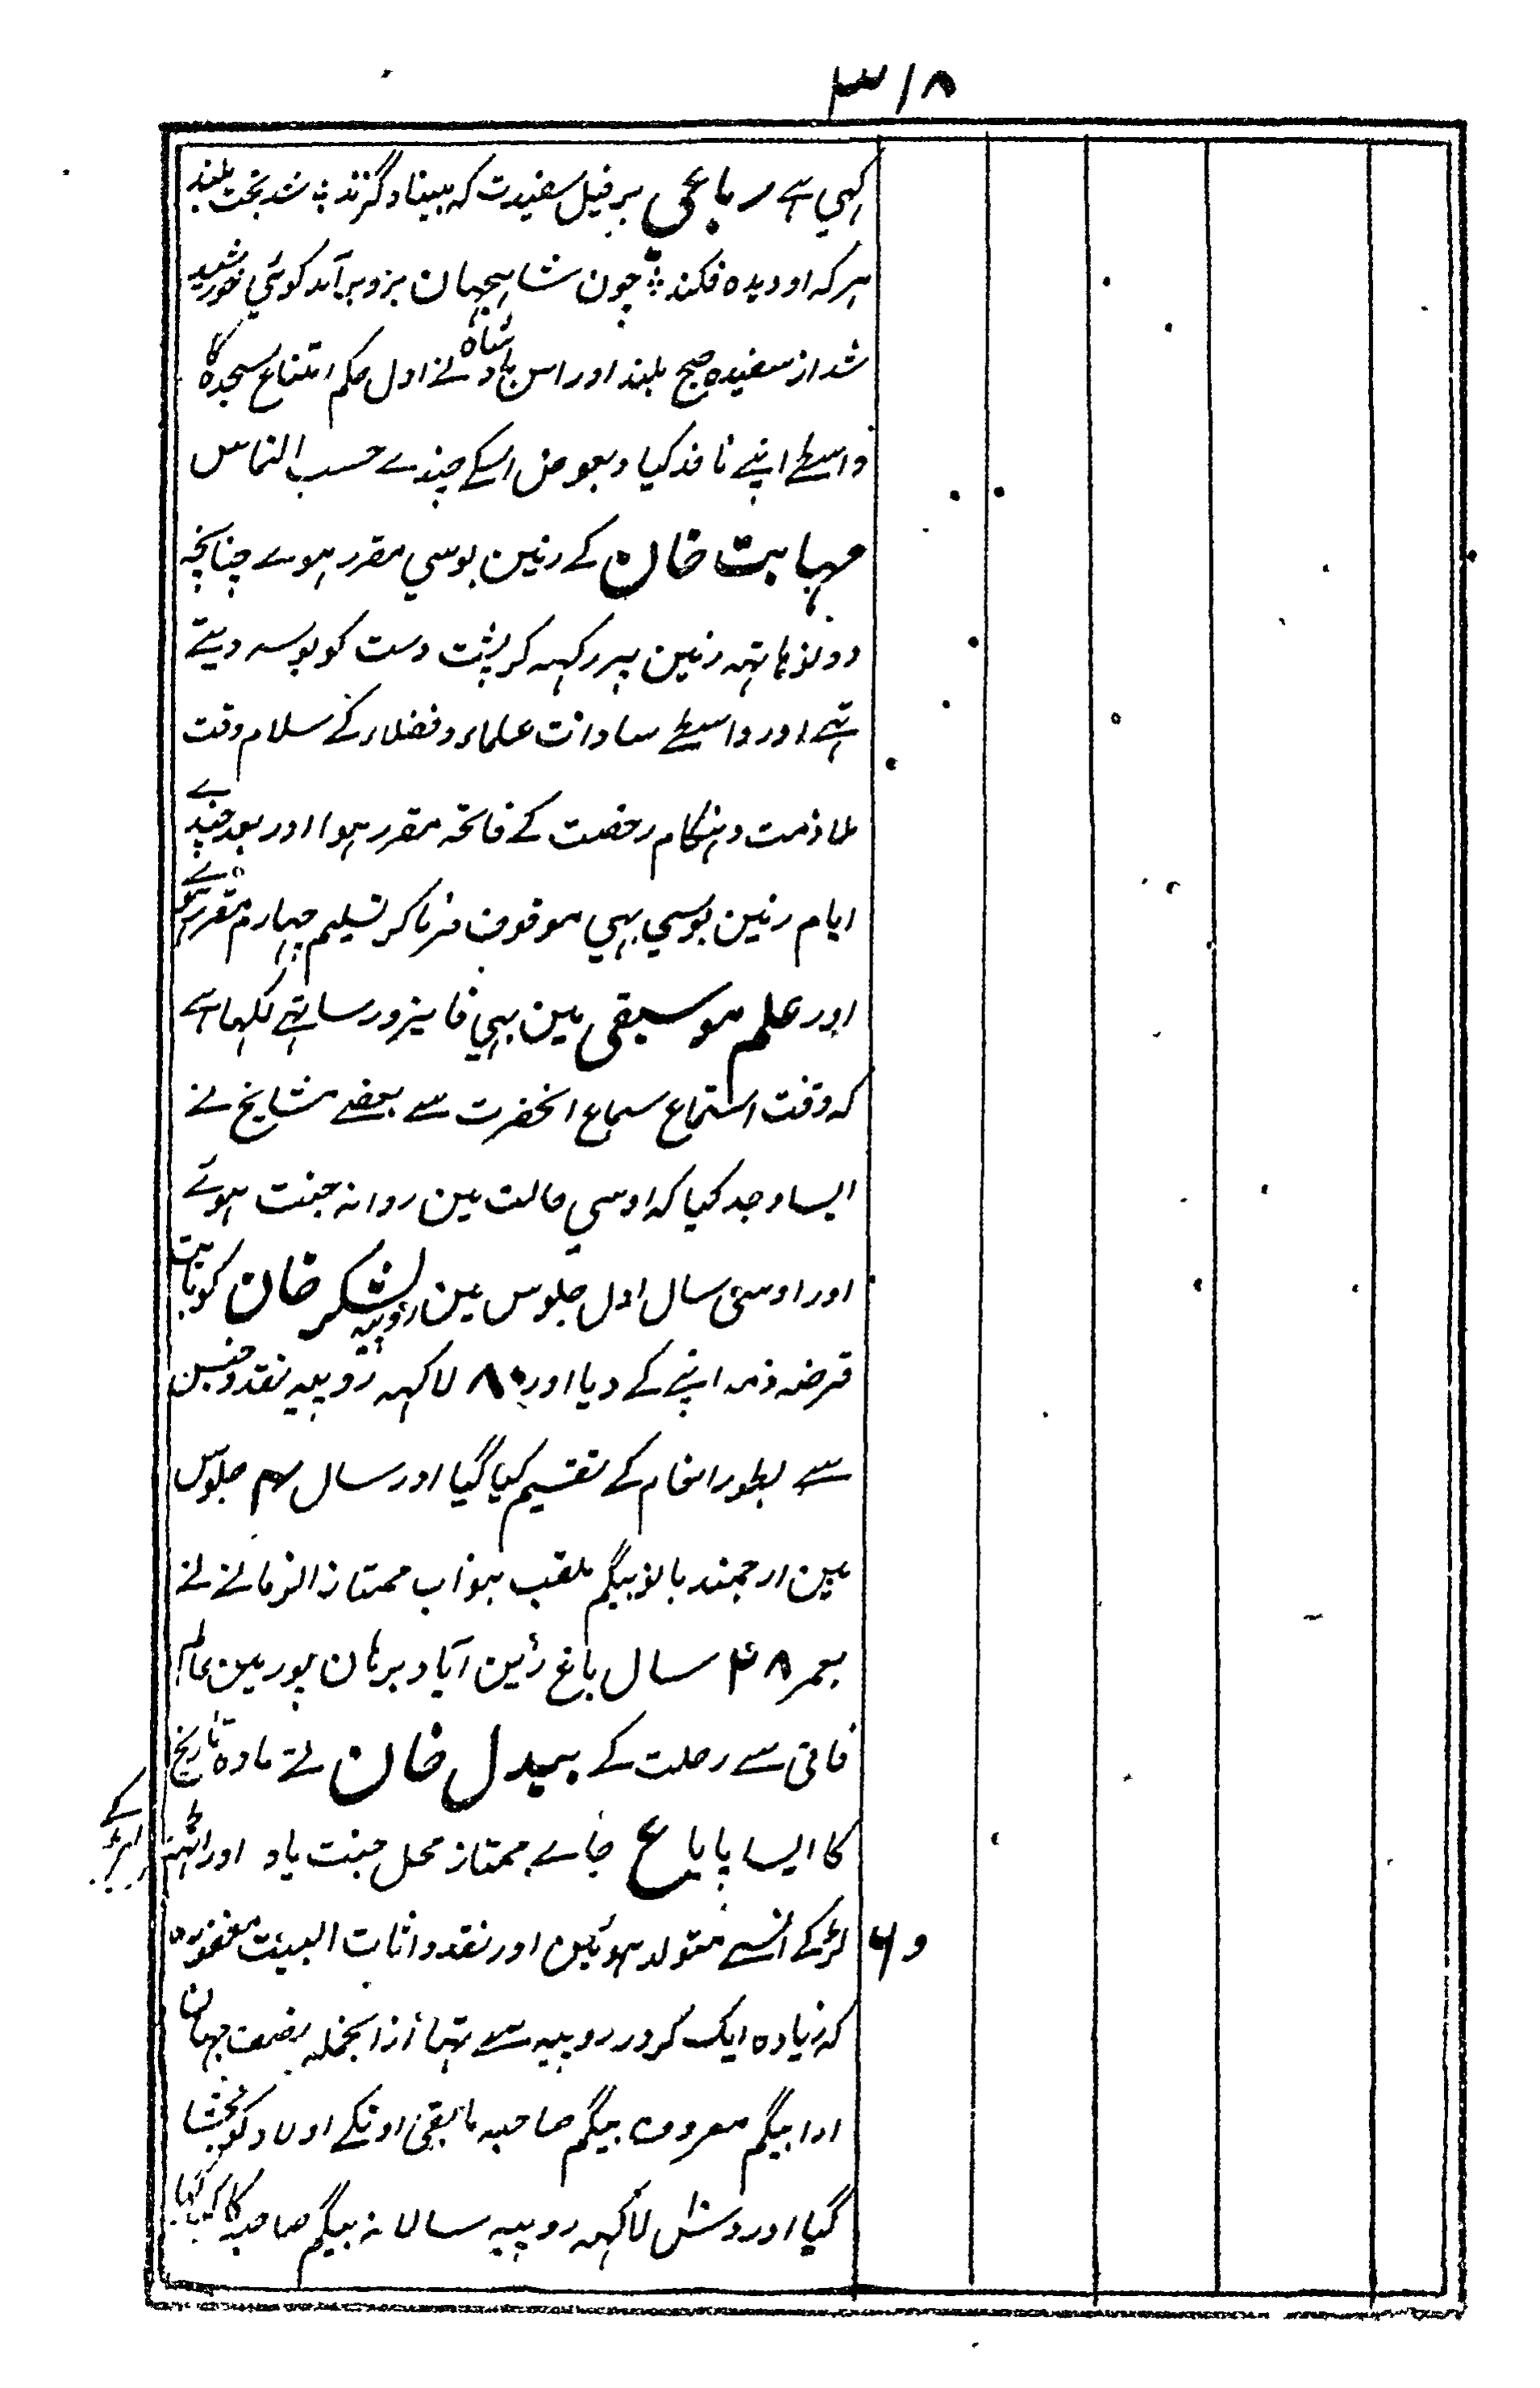 ۳۱۸
کہی ہے رباعی بر فیل سفیدت کہ مبیناد گزند ؞ شد بخت بلند
ہر کہ او دیدہ فکند ؞ چون شاہجہان برو برآمد کوئی خورشید
شد از سفیدہ صبح بلند اور اس بادشاہ نے اول حکم امتناع سجدہ کا
واسطے اپنے نافذ کیا و بعوض اسکے چندے حسب التماس
مہابت خان کے زمین بوسی مقرر ہوے چنانچہ
دونو ہاتہہ زمین پر رکہہ کر پشت دست کو بوسہ دیتے
تہے اور واسطے سادات علماء و فضلاء کے سلام وقت
ملازمت و ہنگام رخصت کے فاتحہ مقرر ہوا اور بعد چندے
ایام زمین بوسی بہی موقوف فرماکر تسلیم چہارم مقرر ہوے
اور علم موسیقی مین بہی فایز و رسا تہے لکہا ہے
کہ وقت استماع سماع انحضرت سے بعضے مشایخ نے
ایسا وجد کیا کہ اوسی حالت مین روانہ جنت ہوئے
اور اوسی سال اول جلوس مین روپیہ لشکر خان کو بابت
قرضہ ذمہ اپنے کے دیا اور ۸۰ لاکہہ روپیہ نقد و جنس
سے بطور انعام کے تقسیم کیا گیا اور سال ۴ جلوس
مین ارجمند بانو بیگم ملقب بنواب ممتاز الزمانے نے
بعمر ۴۸ سال باغ زین آباد برہان پور مین عالم
فانی سے رحلت کے بیدل خان نے مادہ تاریخ
کا ایسا پایا ع جاے ممتاز محل جنت باد اور آٹہہ لڑکے
و ۶ لڑکے انسے متولد ہوئین اور نقد و اثاث البیت مغفورہ
کہ زیادہ ایک کرور روپیہ سے تہا ازانجملہ نصف جہان
ارا بیگم معروف بیگم صاحبہ مابقی اونکے اولاد کو بخشا
گیا اور دس لاکہہ روپیہ سالانہ بیگم صاحبہ کا کیا گیا